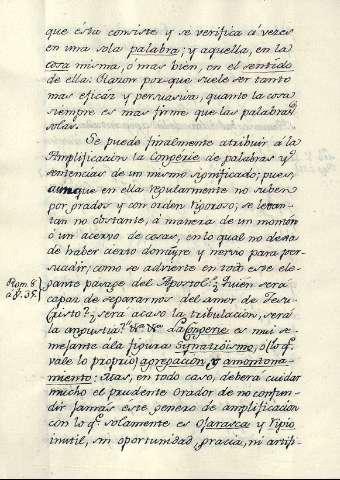 que ésta consiste y se verifica á vezes
en una sola palabra; y aquella, en la
cosa misma, ó mas bien, en el sentido
de ella: Razon por que suele ser tanto
mas eficaz y persuasiva, quanto la cosa
siempre es mas firme que las palabras
solas.
Se puede finalmente atribuir á la
Amplificación la Congerie de palabras y
sentencias de un mismo significado; pues,
aunque en ella regularmente no suben
por grados y con orden vigoroso; se levan-
tan no obstante, á manera de un monton
ó un acervo de cosas, en lo qual no dexa
de haber cierto donayre y nervo para per-
suadir, como se advierte en todo este ele-
Rom. 8.
gante pasage del Apostol: ¿Quién será
capaz de separarnos del amor de Jesu-
cristo? ¿será acaso la tribulación, será
la angustia? &a. &a. La Congerie es mui se-
mejante á la figura Synatroismo, ó lo q.
vale lo proprio agregación, y amontona-
miento: Mas, en todo caso, deberá cuidar
mucho el prudente Orador de no confun-
dir jamas este genero de amplificacion
con lo q. solamente es Ojarasca y ripio
inutil, sin oportunidad, gracia, ni artifi-